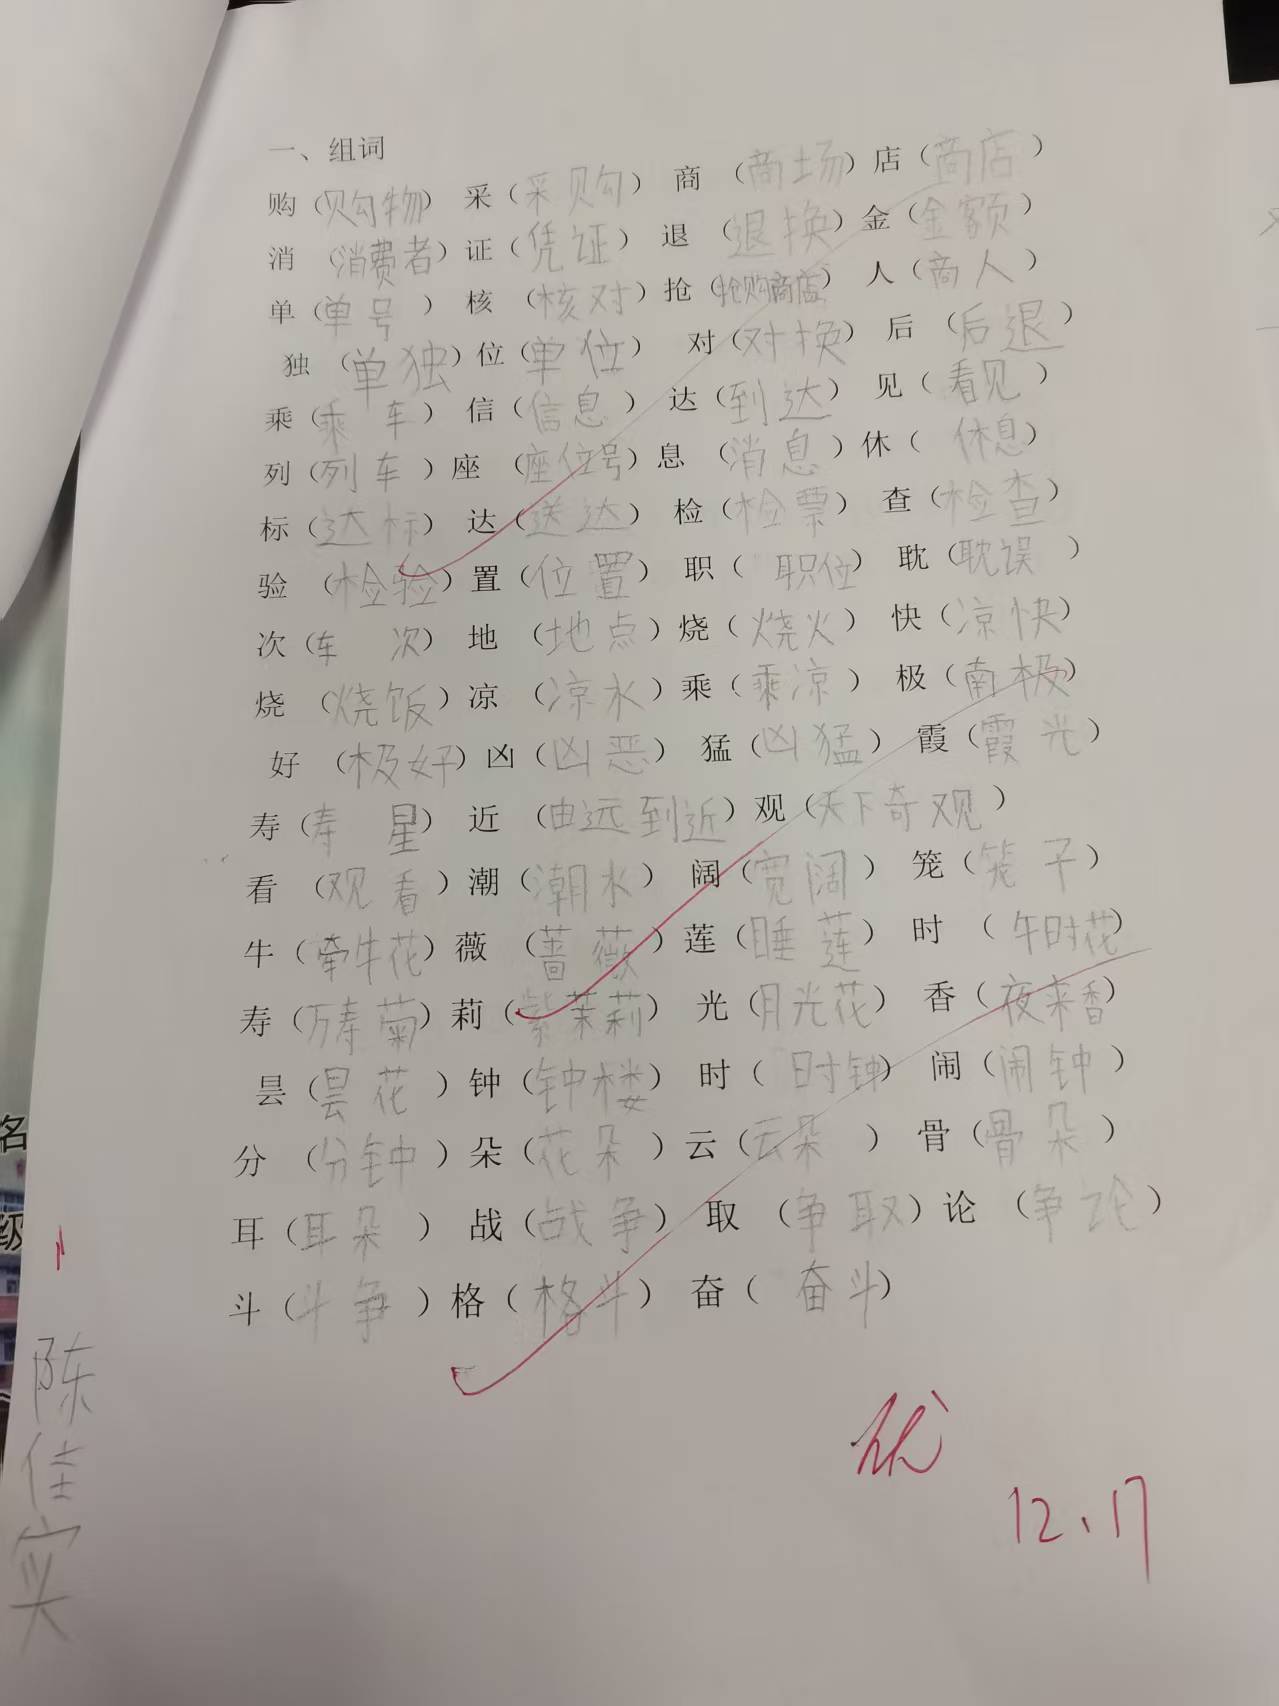 一、组词
购（购物） 采（采购） 商（商场）店（商店）
消（消费者）证（凭证） 退（退换）金（金额）
单（单号） 核（核对）抢（抢购商店） 人（商人）
独（单独）位（单位） 对（对换） 后（后退）
乘（乘车）信（信息） 达（到达） 见（看见）
列（列车）座（座位号）息（消息）休（休息）
标（达标）达（送达） 检（检票） 查（检查）
验（检验）置（位置） 职（职位） 耽（耽误）
次（车次）地（地点）烧（烧火） 快（凉快）
烧（烧饭）凉（凉水）乘（乘凉） 极（南极）
好（极好）凶（凶恶） 猛（凶猛） 霞（霞光）
寿（寿星） 近（由远到近）观（天下奇观）
看（观看）潮（潮水） 阔（宽阔） 笼（笼子）
牛（牵牛花）薇（蔷薇）莲（睡莲） 时（午时花）
寿（万寿菊）莉（紫茉莉） 光（月光花） 香（夜来香）
昙（昙花）钟（钟楼） 时（时钟） 闹（闹钟）
分（分钟）朵（花朵）云（云朵） 骨（骨朵）
耳（耳朵） 战（战争） 取（争取）论（争论）
斗（斗争）格（格斗） 奋（奋斗）
优
12.17
陈佳实
名
级